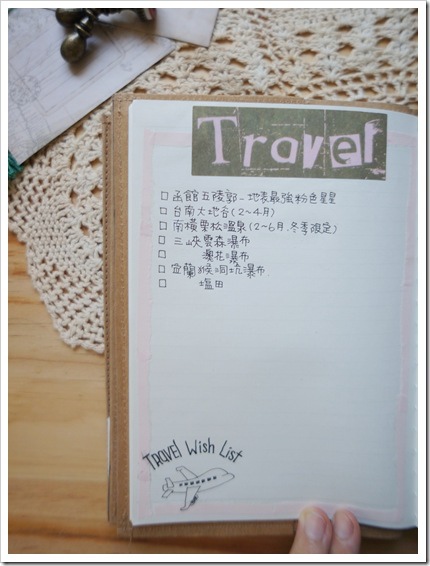 Travel
□ 函館五陵郭-地表最強粉色星星
□ 台南大地谷(2~4月)
□ 南橫栗松溫泉(2~6月.冬季限定)
□ 三峽雲森瀑布
□ 澳花瀑布
□ 宜蘭猴洞坑瀑布.
□ 塩田
TRAVEL Wish List